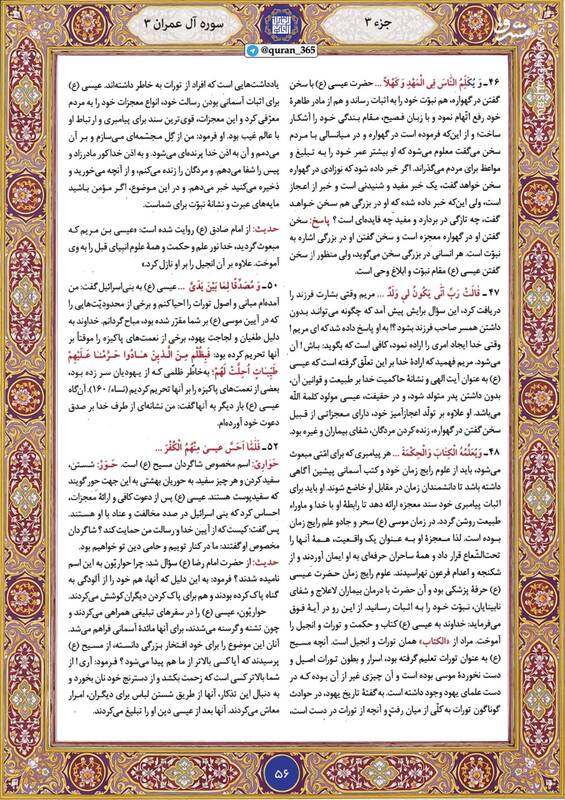 جزء ۳
سوره آل عمران ۳
@quran_365
۴۶ـ وَ يُكَلِّمُ النَّاسَ فِي الْمَهْدِ وَ كَهْلاً ... حضرت عیسی (ع) با سخن
گفتن در گهواره، هم نبوّت خود را به اثبات رساند و هم از مادر طاهرهٔ
خود رفع اتّهام نمود و با زبان فصیح، مقام بندگی خود را آشکار
ساخت؛ و از این‌که فرموده است در گهواره و در میانسالی با مردم
سخن می‌گفت معلوم می‌شود که او بیشتر عمر خود را به تبلیغ و
مواعظ برای مردم می‌گذراند. اگر خبر داده شود که نوزادی در گهواره
سخن خواهد گفت، یک خبر مفید و شنیدنی است و خبر از اعجاز
است، ولی این‌که خبر داده شده که او در بزرگی هم سخن خواهد
گفت، چه تازگی در بردارد و مفید چه فایده‌ای است؟ پاسخ: سخن
گفتن او در گهواره معجزه است و سخن گفتن او در بزرگی اشاره به
نبوّت است. هر انسانی در بزرگی سخن می‌گوید، ولی منظور از سخن
گفتن عیسی (ع) مقام نبوّت و ابلاغ وحی است.
۴۷ـ قَالَتْ رَبِّ أَنَّى يَكُونُ لِي وَلَدٌ ... مریم وقتی بشارت فرزند را
دریافت کرد، این سؤال برایش پیش آمد که چگونه می‌تواند بدون
داشتن همسر صاحب فرزند بشود؟! به او پاسخ داده شد که ای مریم!
وقتی خدا ایجاد امری را اراده نمود، کافی است که بگوید: باش! آن
می‌شود. مریم فهمید که ارادهٔ خدا بر این تعلّق گرفته است که عیسی
(ع) به عنوان آیت الهی و نشانهٔ حاکمیت خدا بر طبیعت و قوانین آن،
بدون داشتن پدر متولد شود، و در حقیقت، عیسی مولود کلمة الله
می‌باشد. او علاوه بر تولّد اعجازآمیز خود، دارای معجزاتی از قبیل
سخن گفتن در گهواره، زنده کردن مردگان، شفای بیماران و غیره بود.
۴۸ـ وَيُعَلِّمُهُ الْكِتَابَ وَالْحِكْمَةَ ... هر پیامبری که برای امّتی مبعوث
می‌شود، باید از علوم رایج زمان خود و کتب آسمانی پیشین آگاهی
داشته باشد تا دانشمندان زمان در مقابل او خاضع شوند. او باید برای
اثبات پیامبری خود سند معجزه ارائه دهد تا رابطهٔ او با خدا و ماوراء
طبیعت روشن گردد. در زمان موسی (ع) سحر و جادو علم رایج زمان
بوده است. لذا معجزهٔ او به عنوان یک واقعیت، همهٔ آنها را
تحت‌الشّعاع قرار داد و همهٔ ساحران حرفه‌ای به او ایمان آوردند و از
شکنجه و اعدام فرعون نهراسیدند. علوم رایج زمان حضرت عیسی
(ع) حرفهٔ پزشکی بود و آن حضرت با درمان بیماران لاعلاج و شفای
نابینایان، نبوّت خود را به اثبات رسانید. از این رو در آیهٔ فوق
می‌فرماید: خداوند به عیسی (ع) کتاب و حکمت و تورات و انجیل را
آموخت. مراد از «الکتاب» همان تورات و انجیل است. آنچه مسیح
(ع) به عنوان تورات تعلیم گرفته بود، اسرار و بطون تورات اصیل و
دست نخوردهٔ موسی بوده است و آن چیزی غیر از آن بوده که در
دست علمای یهود وجود داشته است. به گفتهٔ تاریخ یهود، در حوادث
گوناگون تورات به کلّی از میان رفت و آنچه از تورات در دست است،
یادداشت‌هایی است که افراد از تورات به خاطر داشته‌اند. عیسی (ع)
برای اثبات آسمانی بودن رسالت خود، انواع معجزات خود را به مردم
معرّفی کرد و این معجزات، قوی‌ترین سند برای پیامبری و ارتباط او
با عالم غیب بود. او فرمود: من از گِل مجسّمه‌ای می‌سازم و بر آن
می‌دمم و آن به اذن خدا پرنده‌ای می‌شود. و به اذن خدا کور مادرزاد و
پیس را شفا می‌دهم. و مردگان را زنده می‌کنم، و از آنچه می‌خورید و
ذخیره می‌کنید خبر می‌دهم. و در این موضوع، اگر مؤمن باشید
مایه‌های عبرت و نشانهٔ نبوّت برای شماست.
حدیث: از امام صادق (ع) روایت شده است: «عیسی بن مریم که
مبعوث گردید، خدا نور علم و حکمت و همهٔ علوم انبیای قبل را به وی
آموخت. علاوه بر آن انجیل را بر او نازل کرد.»
۵۰ـ وَ مُصَدِّقًا لِمَا بَيْنَ يَدَيَّ ... عیسی (ع) به بنی‌اسرائیل گفت: من
آمده‌ام مبانی و اصول تورات را احیا کنم و برخی از محدودیّت‌هایی را
که در آیین موسی (ع) بر شما مقرّر شده بود، مباح گردانم. خداوند به
دلیل طغیان و لجاجت یهود، برخی از نعمت‌های پاکیزه را موقتاً بر
آنها تحریم کرده بود: فَبِظُلْمٍ مِنَ الَّذِينَ هَادُوا حَرَّمْنَا عَلَيْهِمْ
طَيِّبَاتٍ أُحِلَّتْ لَهُمْ؛ به‌خاطر ظلمی که از یهودیان سر زده بود،
بعضی از نعمت‌های پاکیزه را بر آنها تحریم کردیم (نساء/۱۶۰). آن‌گاه
عیسی (ع) بار دیگر به آنها گفت: من نشانه‌ای از طرف خدا بر صدق
دعوت خود آورده‌ام.
۵۲ـ فَلَمَّا أَحَسَّ عِيسَى مِنْهُمُ الْكُفْرَ ...
حَوَارِیّ: اسم مخصوص شاگردان مسیح (ع) است. حَوَرَ: شستن،
سفید کردن و هر چیز سفید. به حوریان بهشتی به این جهت حور گویند
که سفیدپوست هستند. عیسی (ع) پس از دعوت کافی و ارائهٔ معجزات،
احساس کرد که بنی اسرائیل در صدد مخالفت و عناد با او هستند.
پس گفت: کیست که از آیین خدا و رسالت من حمایت کند؟ شاگردان
مخصوص او گفتند: ما در کنار توییم و حامی دین تو خواهیم بود.
حدیث: از حضرت امام رضا (ع) سؤال شد: چرا حواریّون به این اسم
نامیده شدند؟ فرمود: به این دلیل که آنها، هم خود را از آلودگی به
گناه پاک کرده بودند و هم برای پاک کردن دیگران کوشش می‌کردند.
حواریّون، عیسی (ع) را در سفرهای تبلیغی همراهی می‌کردند و
چون تشنه و گرسنه می‌شدند، برای آنها مائدهٔ آسمانی فراهم می‌شد.
آنان این موضوع را برای خود افتخار بزرگی دانسته، از مسیح (ع)
پرسیدند که آیا کسی بالاتر از ما هم پیدا می‌شود؟ فرمود: آری! از
شما بالاتر کسی است که زحمت بکشد و از دسترنج خود نان بخورد و
به دنبال این تذکار، آنها از طریق شستن لباس برای دیگران، امرار
معاش می‌کردند. آنها بعد از عیسی دین او را تبلیغ می‌کردند.
۵۶